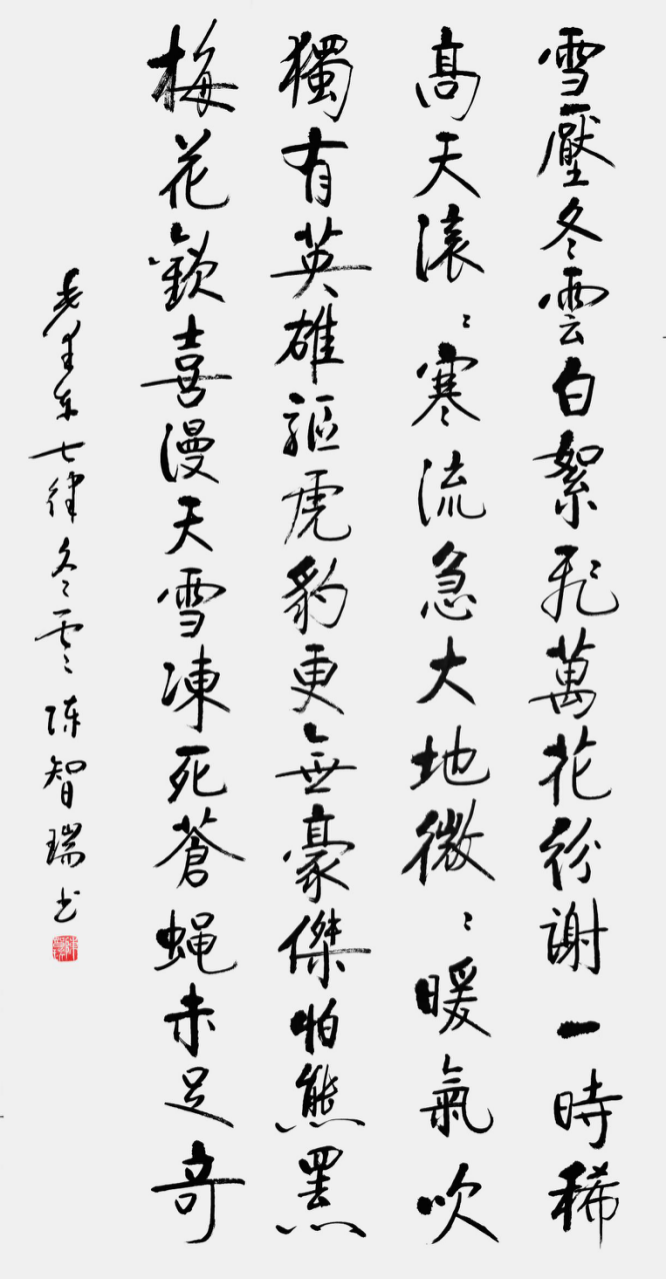 雪壓冬雲白絮飛萬花紛謝一時稀
髙天滚〻寒流急大地微〻暖氣吹
獨有英雄驅虎豹更無豪傑怕熊羆
梅花歡喜漫天雪凍死蒼蝇未足奇
毛泽东七律冬雲 陈智瑞书